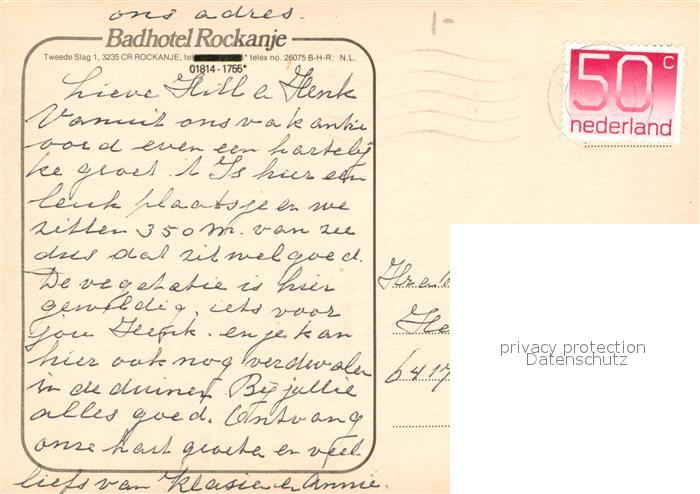 ons adres.
Badhotel Rockanje
Tweede Slag 1, 3235 CR ROCKANJE, tel. telex no. 26075 B-H-R. N.L.
01814 - 1755*
Lieve Hill en Henk
Vanuit ons vakantie
oord even een hartelij
ke groet. 't Is hier een
leuk plaatsje en we
zitten 350 m. van zee
dus dat zit wel goed.
De vegetatie is hier
geweldig, iets voor
jou Henk. en je kan
hier ook nog verdwalen
in de duinen. Bij jullie
alles goed. Ontvang
onze hart groeten en veel
liefs van Klasie en Annie.
50 c
nederland
6417
privacy protection
Datenschutz